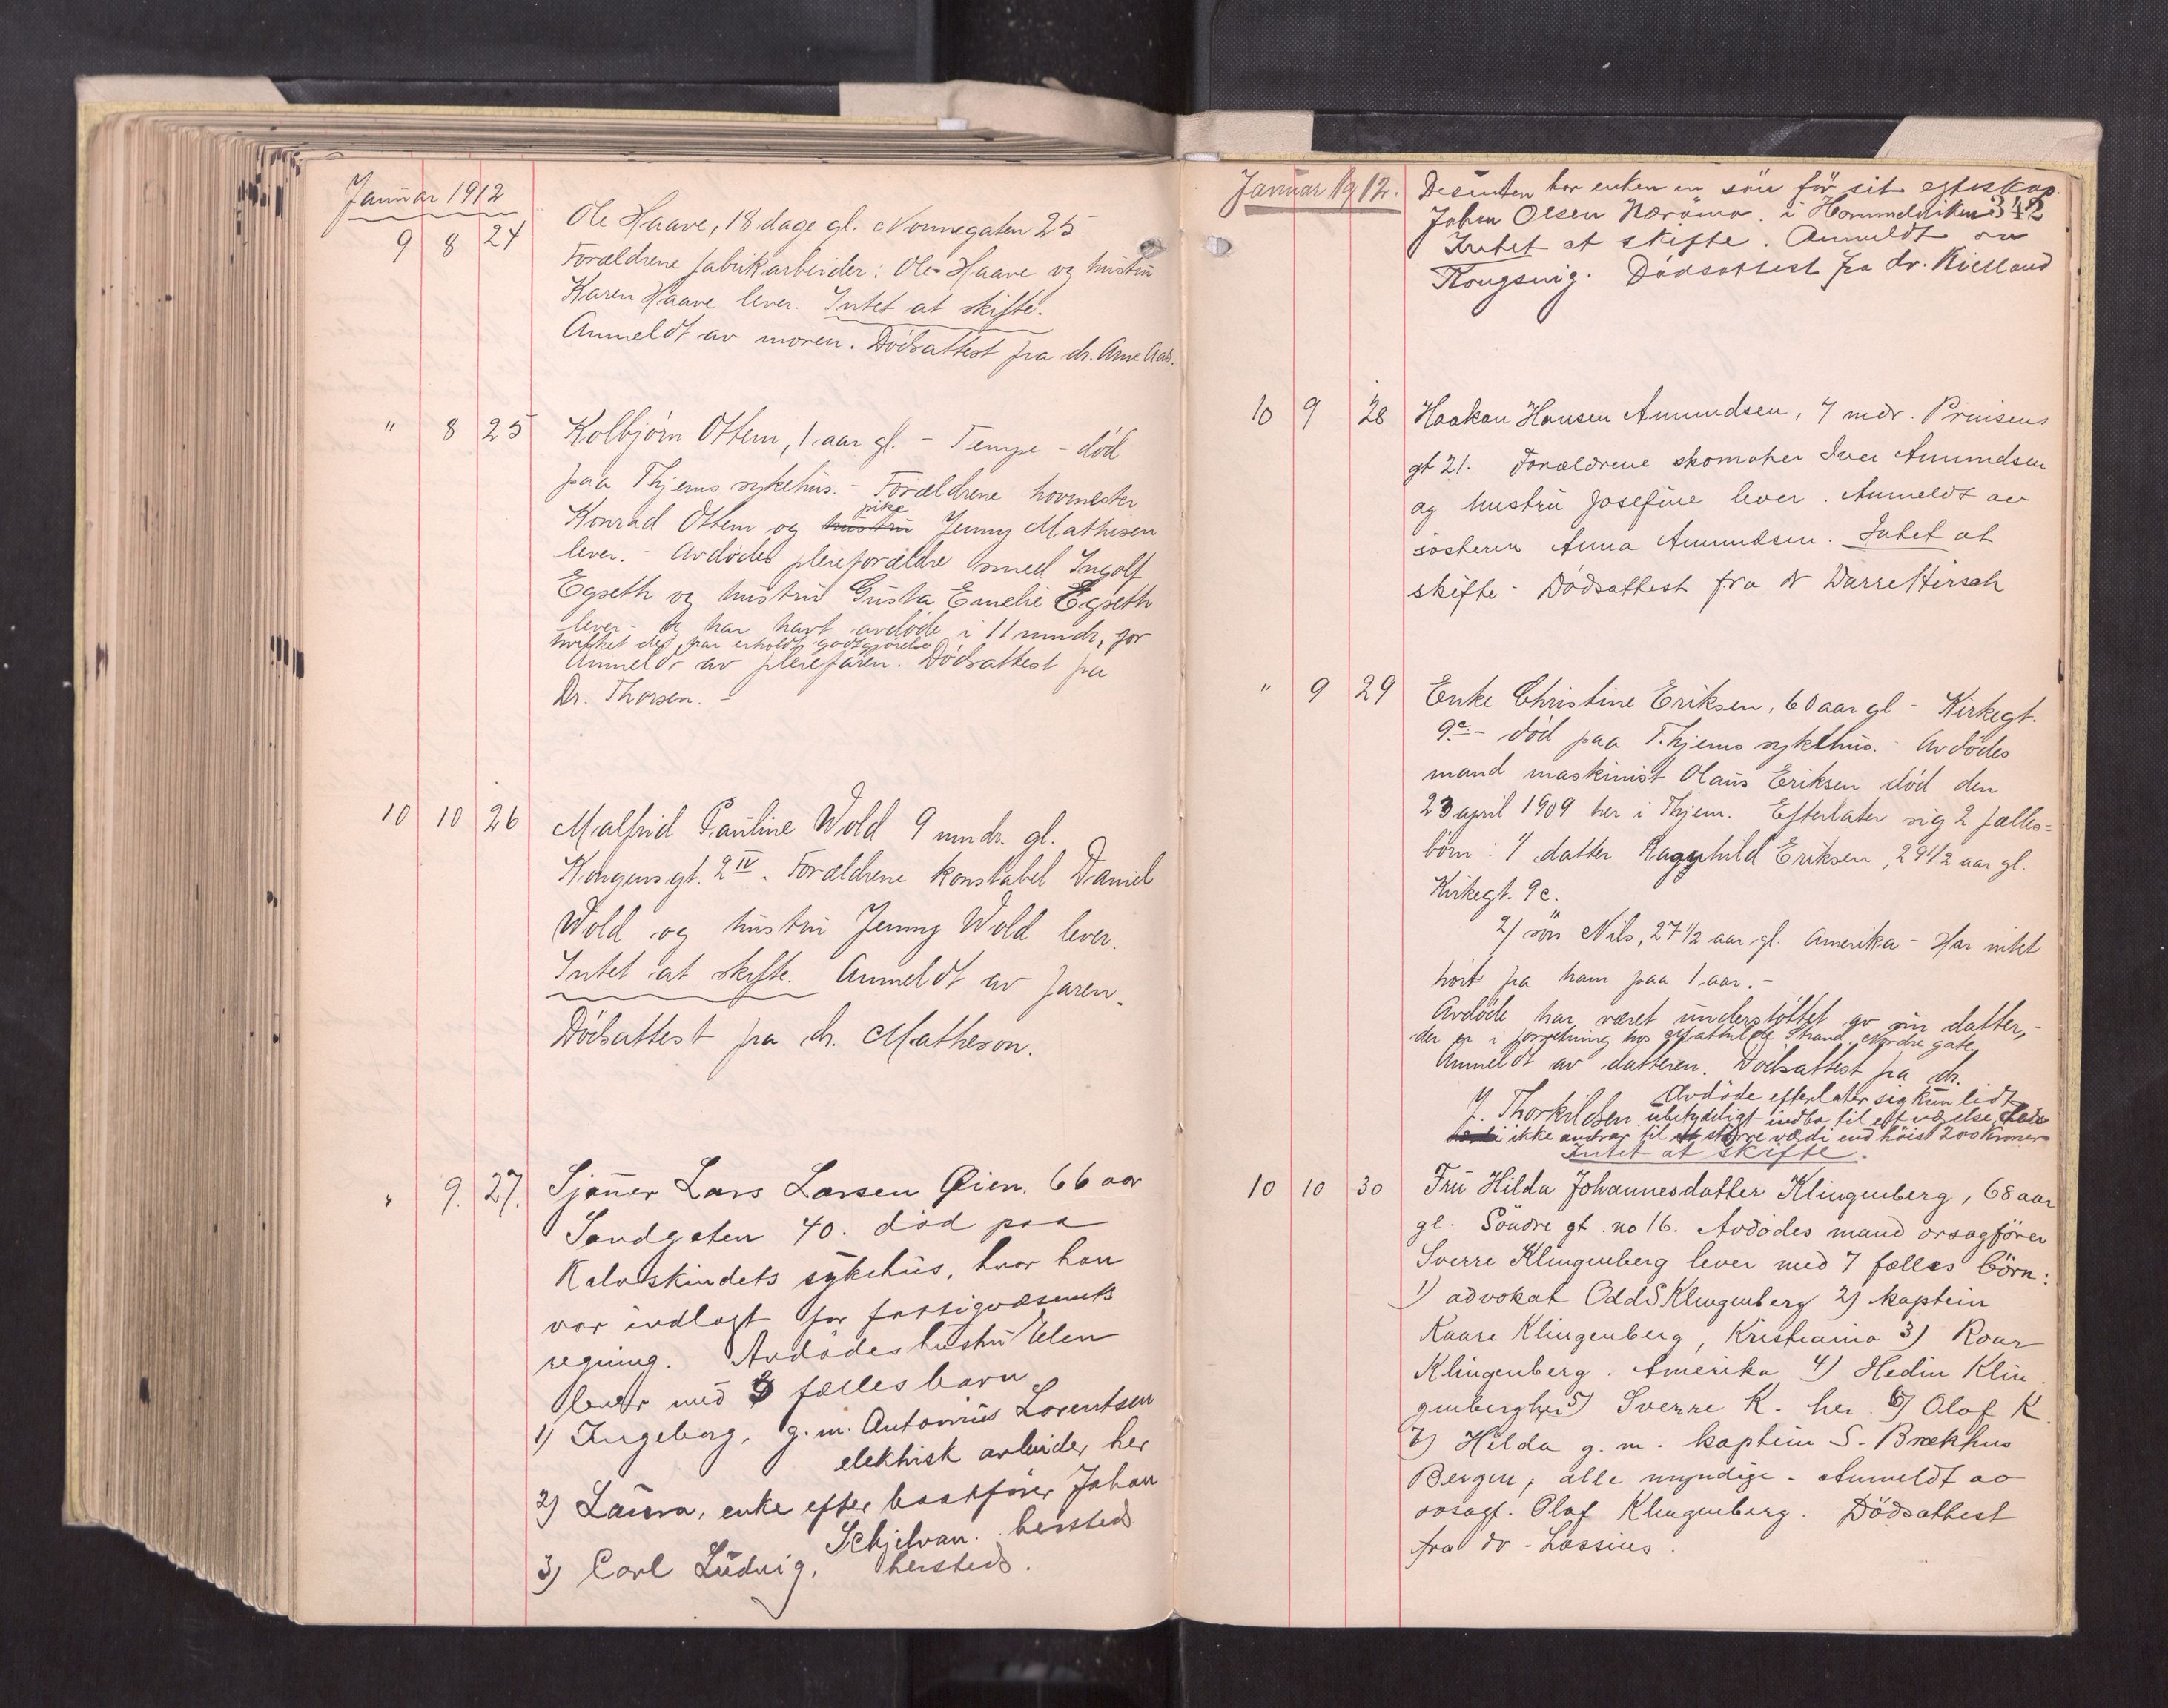 Januar 1912
9 8 24 Ole Haave, 18 dage gl. Nonnegaten 25.
Forældrene fabrikarbeider: Ole Haave og hustru
Karen Haave lever. Intet at skifte.
Anmeldt av moren. Dödsattest fra dr. Arne Aas.
" 8 25 Kolbjörn Ottem, 1 aar gl. - Tempe - död
paa Thjems sykehus. - Forældrene hovmester
Konrad Ottem og hustru pike Jenny Mathisen
lever. - Avdödes pleieforældre smed Ingolf
Egseth og hustru Gusta Emelie Egseth
lever - og har havt avdöde i 11 mndr, for
hvilket de har erholdt godtgjörelse
Anmeldt av pleiefaren. Dödsattest fra
Dr. Thorsen. -
10 10 26 Malfrid Pauline Wold 9 mndr. gl.
Kongensgt. 2 IV. Forældrene konstabel Daniel
Wold og hustru Jenny Wold lever.
Intet at skifte. Anmeldt av faren.
Dödsattest fra dr. Matheson.
" 9. 27. Sjauer Lars Larsen Øien. 66 aar
Sandgaten 40. död paa
Kalvskindets sykehus, hvor han
var indlagt for fattigvæsenets
regning. Avdödes hustru Elen
lever med 3 fælles barn
1) Ingeborg, g.m. Antonius Lorentsen
elektrisk arbeider her
2) Laura, enke efter baatförer Johan
Schjelvan. hersteds
3) Carl Ludvig, hersteds.
Januar 1912.
342
Desuden har enken en sön för sit egteskap.
Johan Olsen Nærömo. i Hommelviken
Intet at skifte. Anmeldt av
Kongsvig. Dödsattest fra dr. Kielland
10 9 28 Haakon Hansen Amundsen, 7 mdr. Prinsens
gt 21. Forældrene skomaker Iver Amundsen
og hustru Josefine lever. Anmeldt av
sösteren Anna Amundsen. Intet at
skifte - Dödsattest fra dr Darre Hirsch
" 9 29 Enke Christine Eriksen, 60 aar gl - Kirkegt.
9c - död paa T.hjems sykehus. - Avdödes
mand maskinist Olaus Eriksen död den
23 april 1909 her i Thjem. Efterlater sig 2 fælles=
börn: 1/ datter Ragnhild Eriksen, 29 1/2 aar gl.
Kirkegt. 9c.
2/ sön Nils, 27 1/2 aar gl. Amerika - Har intet
hört fra ham paa 1 aar. -
Avdöde har været understöttet av sin datter, -
der er i forretning hos Mathilde Strand. Nordre gate.
Anmeldt av datteren. Dödsattest fra dr.
J. Thorkildsen. Avdöde efterlater sig kun lidt
ubetydeligt indbo til ett værelse
ikke andrar til större værdi end höist 200 kroner
Intet at skifte.
10 10 30 Fru Hilda Johannesdatter Klingenberg, 68 aar
gl. Söndre gt. no 16. Avdödes mand orsagförer
Sverre Klingenberg lever med 7 fælles börn:
1) advokat Odd S Klingenberg 2) kaptein
Kaare Klingenberg, Kristiania 3) Roar
Klingenberg. Amerika 4) Hedin Klin
genberg her 5) Sverre K. her. 6) Olaf K.
7) Hilda g. m. kaptein S. Brækhus
Bergen; alle myndige - Anmeldt av
orsagf. Olaf Klingenberg. Dödsattest
fra dr. Lossius.